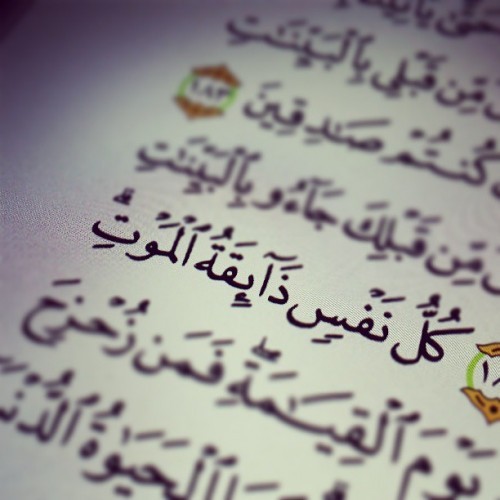 مِّن قَبْلِي بِٱلْبَيِّنَٰتِ
كُنتُمْ صَٰدِقِينَ ١٨٣
مِّن قَبْلِكَ جَآءُو بِٱلْبَيِّنَٰتِ
كُلُّ نَفْسٍ ذَآئِقَةُ ٱلْمَوْتِ ۗ
يَوْمَ ٱلْقِيَٰمَةِ ۖ فَمَن زُحْزِحَ
ٱلْحَيَوٰةُ ٱلدُّنْ